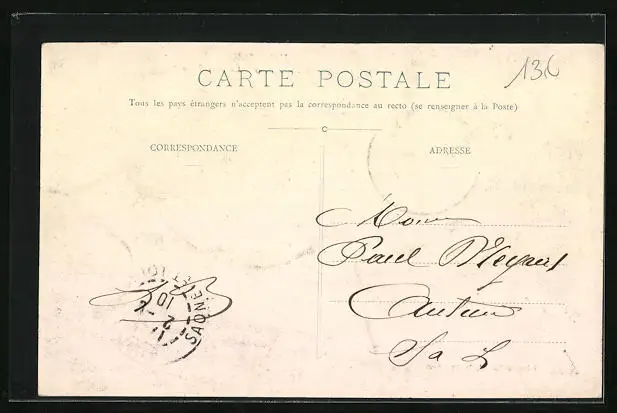 CARTE POSTALE
136
Tous les pays étrangers n'acceptent pas la correspondance au recto (se renseigner à la Poste)
C
CORRESPONDANCE
ADRESSE
Paul
Autun
S a L
SAONE
10